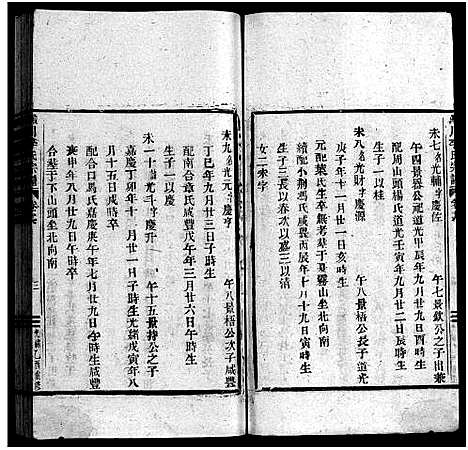 川李氏宗譜
未七名光輔字慶佐　午七景欽公之子出兼
午四景公祧道光甲辰年九月廿九日酉時生
配周山頭楊氏道光壬寅年九月廿二日辰時生
生子一以桂
未八名光財字慶源　午八景梧公長子道光
庚子年十一月廿一日亥時生
元配葉氏生卒無考墓下夏霧山坐北向南
續配小荊馮氏咸豐丙辰年十月十九日寅時生
生子三長以春次以慶三以清
女二采字
未九名光元字慶亨　午八景梧公次子咸豐
丁巳年九月廿三日子時生
配南台章氏咸豐戊午年三月廿六日午時生
生子一以慶
未十名光斗字慶升　午十五景持公之子
嘉慶丁卯年十一月廿一日子時生光緒戊寅年八
月十五日戌時卒
配合口馬氏嘉慶庚午年七月廿九日午時生咸豐
庚申年八月廿九日午時卒
合葬于下山頭坐北向南
川李氏宗譜